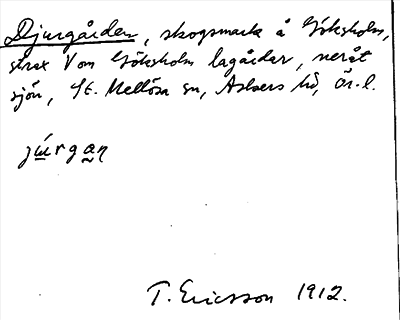 Djurgården, skogsmark å Göksholm,
strax V om Göksholm lagårdar, neråt
sjön, St. Mellösa sn, Askers hd, Ör. l.
júrgan
T. Ericsson 1912.